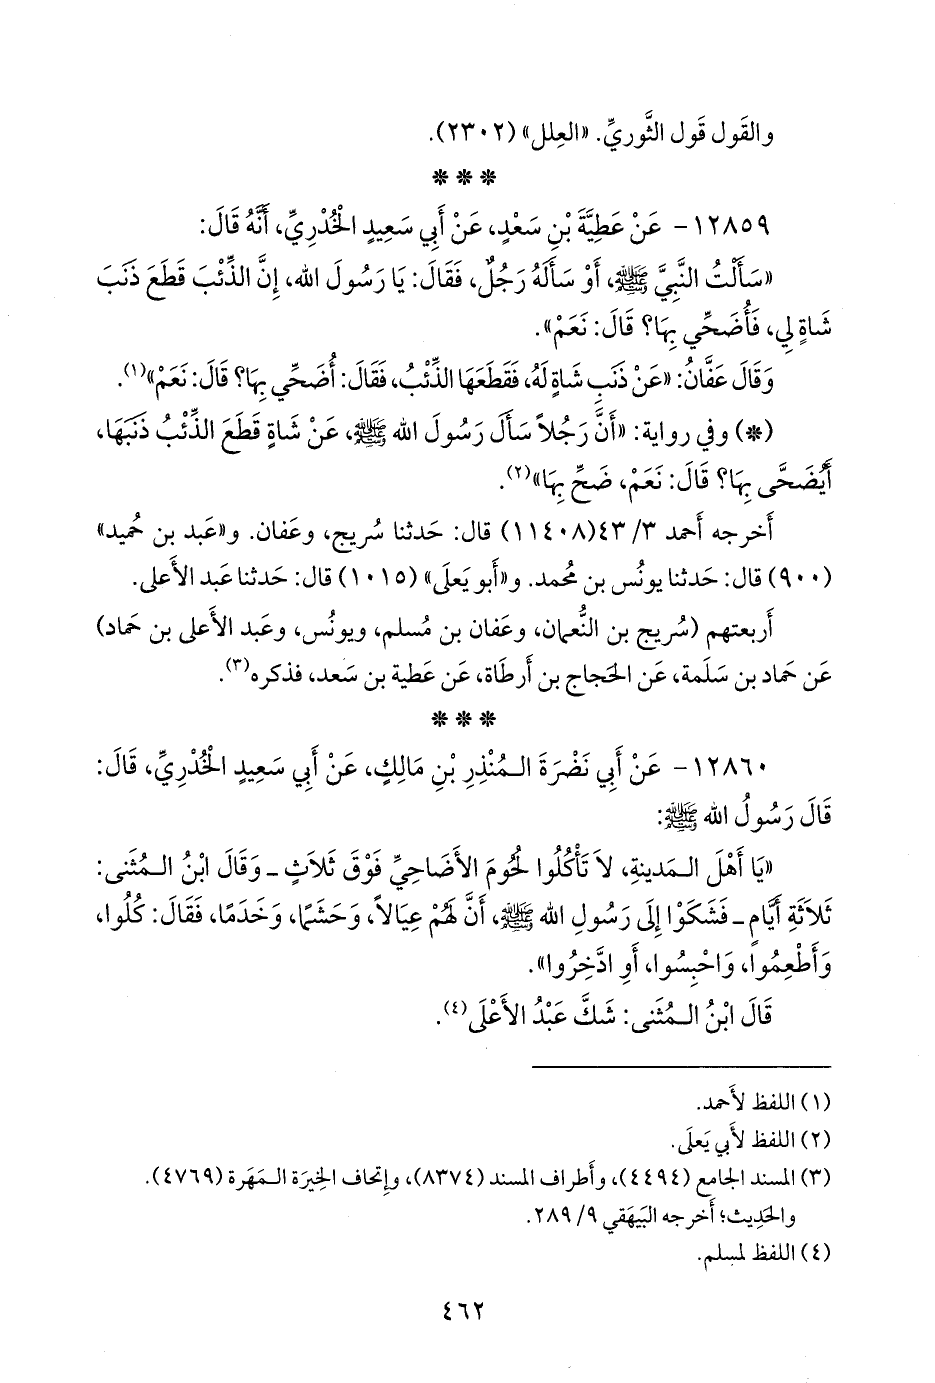 والقَول قَول الثَّوريِّ. «العِلل» (٢٣٠٢).
* * *
١٢٨٥٩- عَنْ عَطِيَّةَ بْنِ سَعْدٍ، عَنْ أَبِي سَعِيدٍ الْخُدْرِيِّ، أَنَّهُ قَالَ:
«سَأَلْتُ النَّبِيَّ ﷺ، أَوْ سَأَلَهُ رَجُلٌ، فَقَالَ: يَا رَسُولَ الله، إِنَّ الذِّئْبَ قَطَعَ ذَنَبَ
شَاةٍ لِي، فَأُضَحِّي بِهَا؟ قَالَ: نَعَمْ».
وَقَالَ عَفَّانُ: «عَنْ ذَنَبِ شَاةٍ لَهُ، فَقَطَعَهَا الذِّئْبُ، فَقَالَ: أُضَحِّي بِهَا؟ قَالَ: نَعَمْ»(١).
(*) وفي رواية: «أَنَّ رَجُلاً سَأَلَ رَسُولَ الله ﷺ، عَنْ شَاةٍ قَطَعَ الذِّئْبُ ذَنَبَهَا،
أَيُضَحَّى بِهَا؟ قَالَ: نَعَمْ، ضَحِّ بِهَا»(٢).
أَخرجه أَحمد ٣/ ٤٣(١١٤٠٨) قال: حَدثنا سُريج، وعَفان. و«عَبد بن حُميد»
(٩٠٠) قال: حَدثنا يونُس بن مُحمد. و«أَبو يَعلَى» (١٠١٥) قال: حَدثنا عَبد الأَعلى.
أَربعتهم (سُريج بن النُّعمان، وعَفان بن مُسلم، ويونُس، وعَبد الأَعلى بن حَماد)
عَن حَماد بن سَلَمة، عَن الحَجاج بن أَرطَاة، عَن عَطية بن سَعد، فذكره(٣).
* * *
١٢٨٦٠- عَنْ أَبِي نَضْرَةَ الـمُنْذِرِ بْنِ مَالِكٍ، عَنْ أَبِي سَعِيدٍ الْخُدْرِيِّ، قَالَ:
قَالَ رَسُولُ الله ﷺ:
«يَا أَهْلَ الـمَدينةِ، لاَ تَأْكُلُوا لُحُومَ الأَضَاحِيِّ فَوْقَ ثَلاَثٍ ـ وَقَالَ ابْنُ الـمُثَنى:
ثَلاَثَةِ أَيَّامٍ ـ فَشَكَوْا إِلَى رَسُولِ الله ﷺ، أَنَّ لَهُمْ عِيَالاً، وَحَشَمًا، وَخَدَمًا، فَقَالَ: كُلُوا،
وَأَطْعِمُوا، وَاحْبِسُوا، أَوِ ادَّخِرُوا».
قَالَ ابْنُ الـمُثَنى: شَكَّ عَبْدُ الأَعْلَى(٤).
(١) اللفظ لأَحمد.
(٢) اللفظ لأَبي يَعلَى.
(٣) المسند الجامع (٤٤٩٤)، وأَطراف المسند (٨٣٧٤)، وإِتحاف الخِيرَة الـمَهَرة (٤٧٦٩).
والحَدِيث؛ أَخرجه البَيهَقي ٩/ ٢٨٩.
(٤) اللفظ لمسلم.
٤٦٢